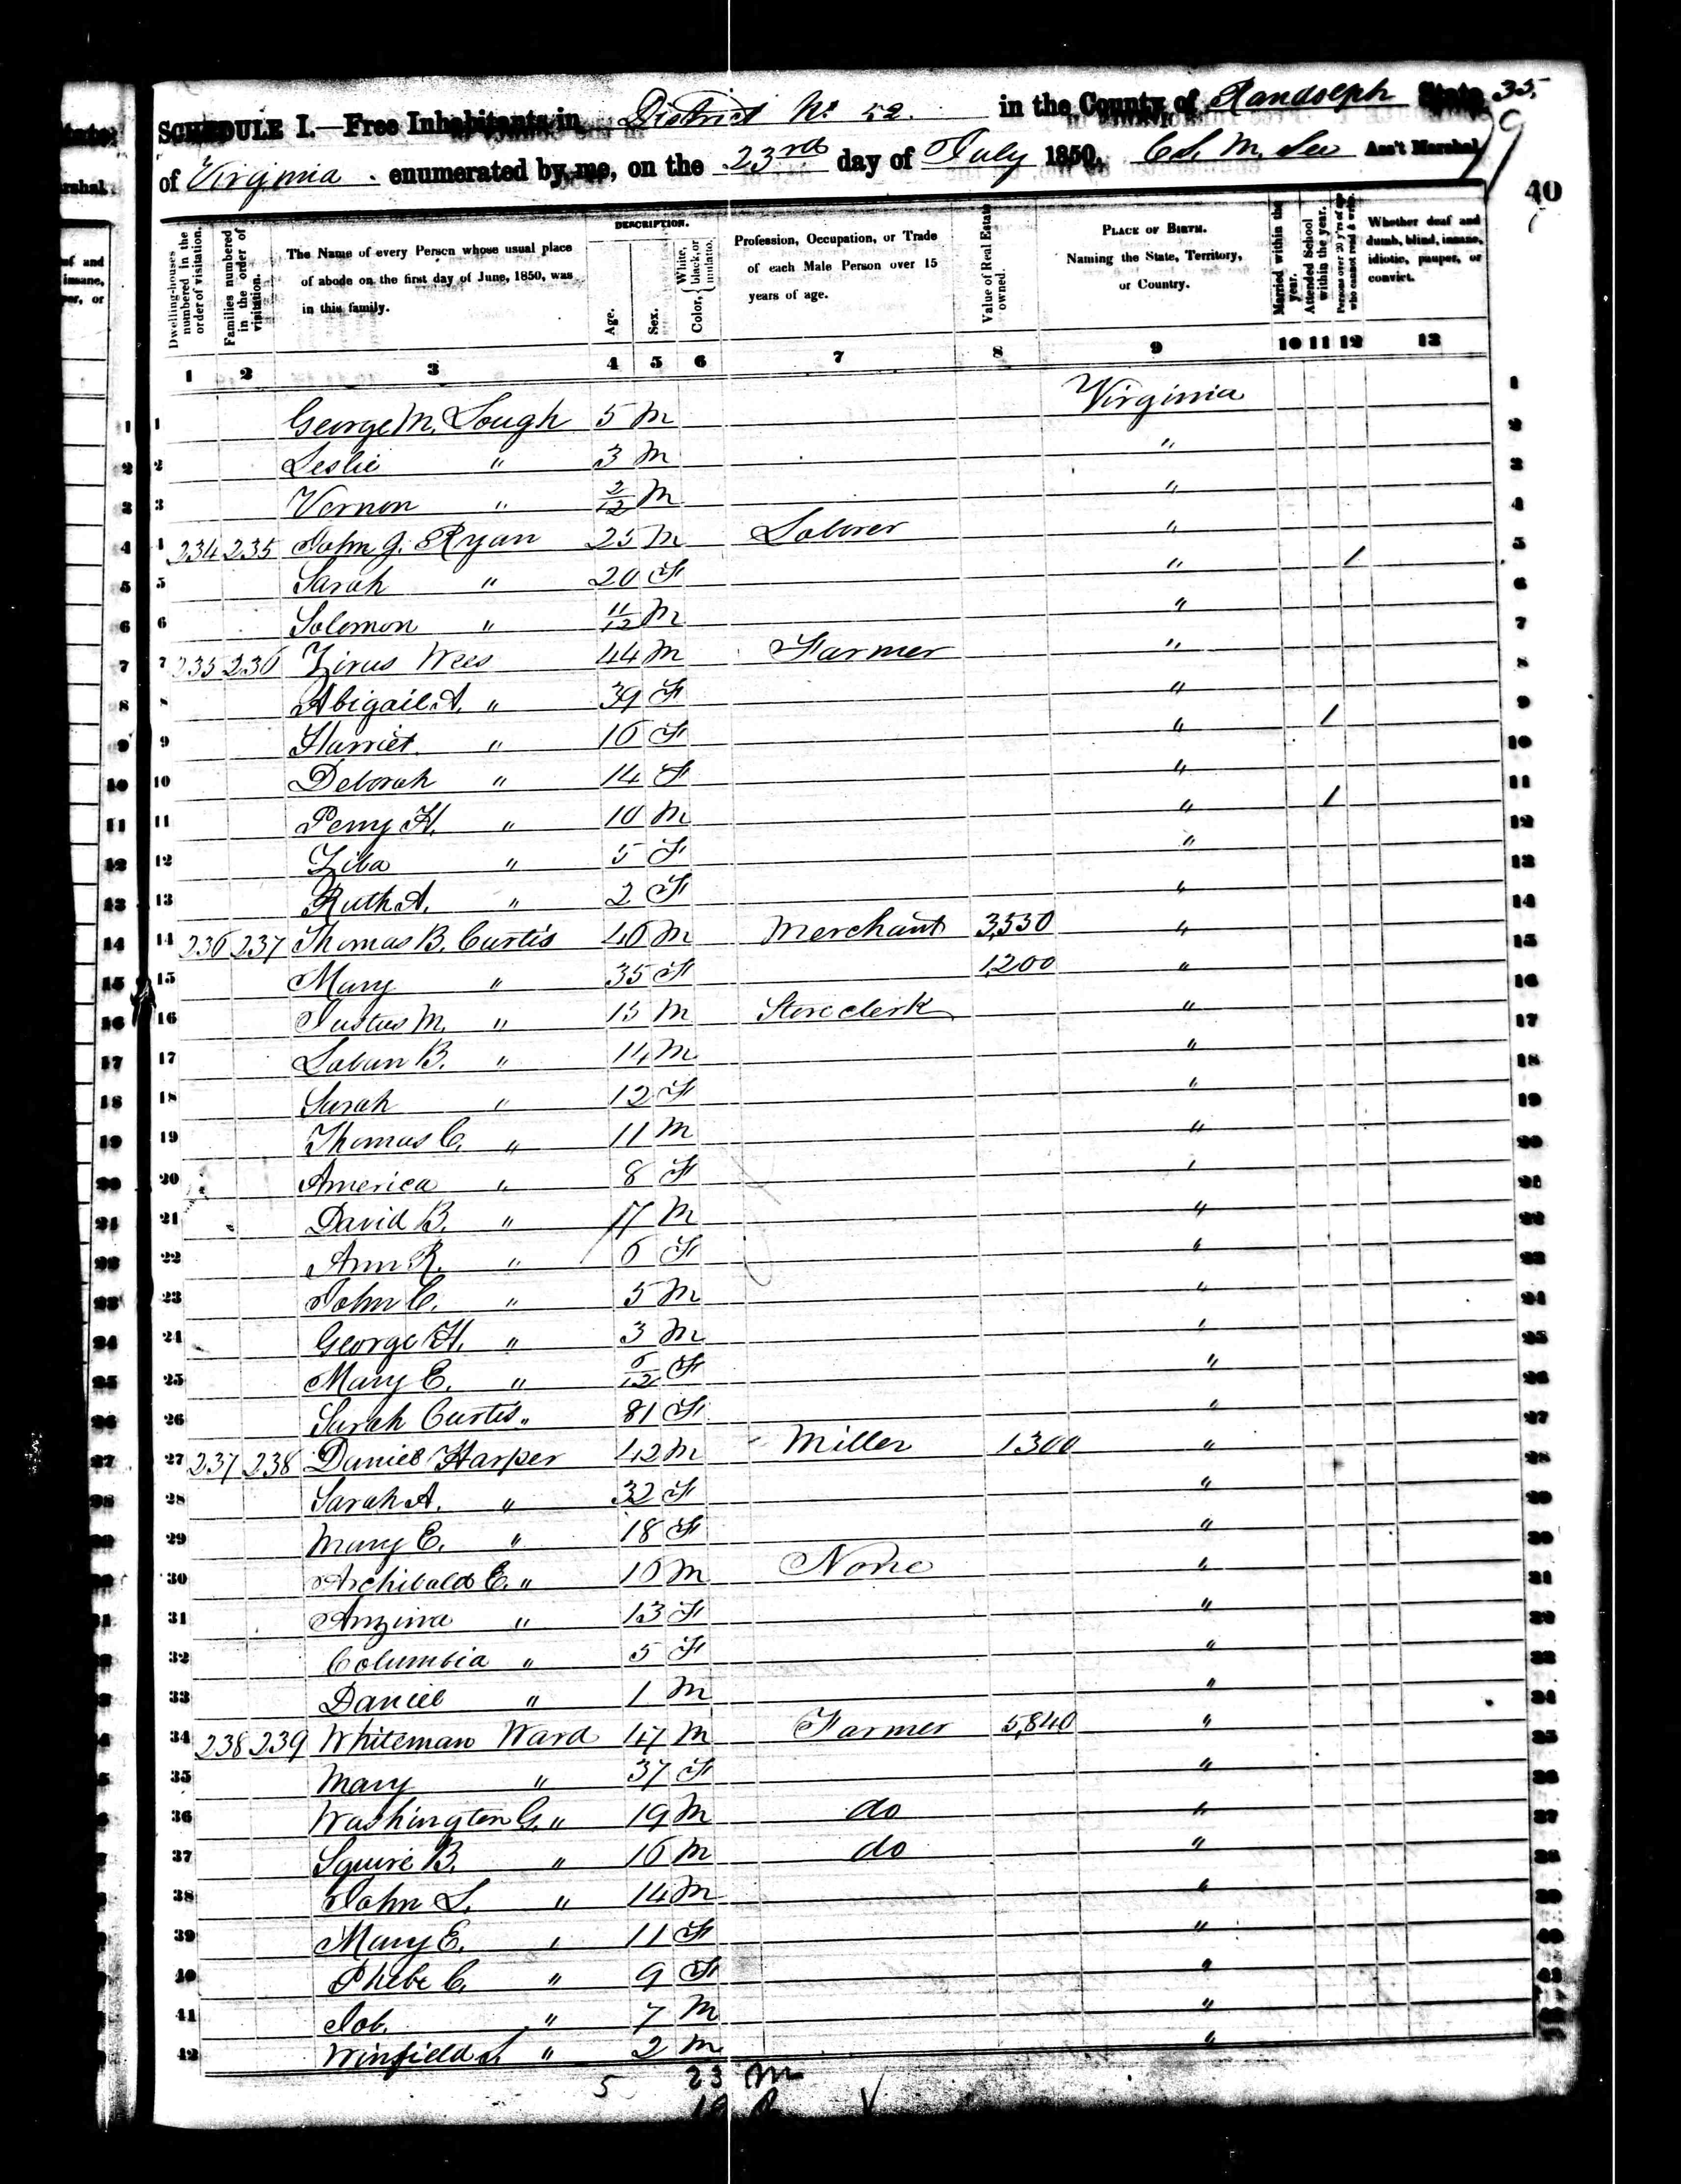 35.
SCHEDULE I.—Free Inhabitants in District No. 52. in the County of Randolph State
of Virginia enumerated by me, on the 23rd day of July 1850. Ass't Marshal.
40
Dwelling-houses numbered in the order of visitation.
Families numbered in the order of visitation.
The Name of every Person whose usual place of abode on the first day of June, 1850, was in this family.
DESCRIPTION.
Age.
Sex.
Color, { White, black, or mulatto.
Profession, Occupation, or Trade of each Male Person over 15 years of age.
Value of Real Estate owned.
PLACE OF BIRTH. Naming the State, Territory, or Country.
Married within the year.
Attended School within the year.
Persons over 20 y'rs of age who cannot read & write.
Whether deaf and dumb, blind, insane, idiotic, pauper, or convict.
1 2 3 4 5 6 7 8 9 10 11 12 13
1 George M. Lough 5 M Virginia
2 Leslie " 3 M "
3 Vernon " 2/12 M "
4 234 235 John G. Ryan 25 M Laborer "
5 Sarah " 20 F " /
6 Solomon " 11/12 M "
7 235 236 Zirus Wees 44 M Farmer "
8 Abigail A. " 39 F "
9 Harriet " 16 F " /
10 Deborah " 14 F "
11 Perry H. " 10 M " /
12 Ziba " 5 F "
13 Ruth A. " 2 F "
14 236 237 Thomas B. Curtis 46 M Merchant 3,530 "
15 Mary " 35 F 1,200 "
16 Justus M. " 15 M Store clerk "
17 Laban B. " 14 M "
18 Sarah " 12 F "
19 Thomas C. " 11 M "
20 America " 8 F "
21 David B. " M "
22 Ann R. " 6 F "
23 John C. " 5 M "
24 George H. " 3 M "
25 Mary E. " F "
26 Sarah Curtis " 81 F "
27 237 238 Daniel Harper 42 M Miller 1300 "
28 Sarah A. " 32 F "
29 Mary E. " 18 F "
30 Archibald E. " 16 M None "
31 Anzina " 13 F "
32 Columbia " 5 F "
33 Daniel " 1 M "
34 238 239 Whiteman Ward 47 M Farmer 5,840 "
35 Mary " 37 F "
36 Washington G. " 19 M do "
37 Squire B. " 16 M do "
38 John L. " 14 M "
39 Mary E. " 11 F "
40 Phebe C. " 9 F "
41 Job. " 7 M "
42 Winfield S. " 2 M "
5 23 M